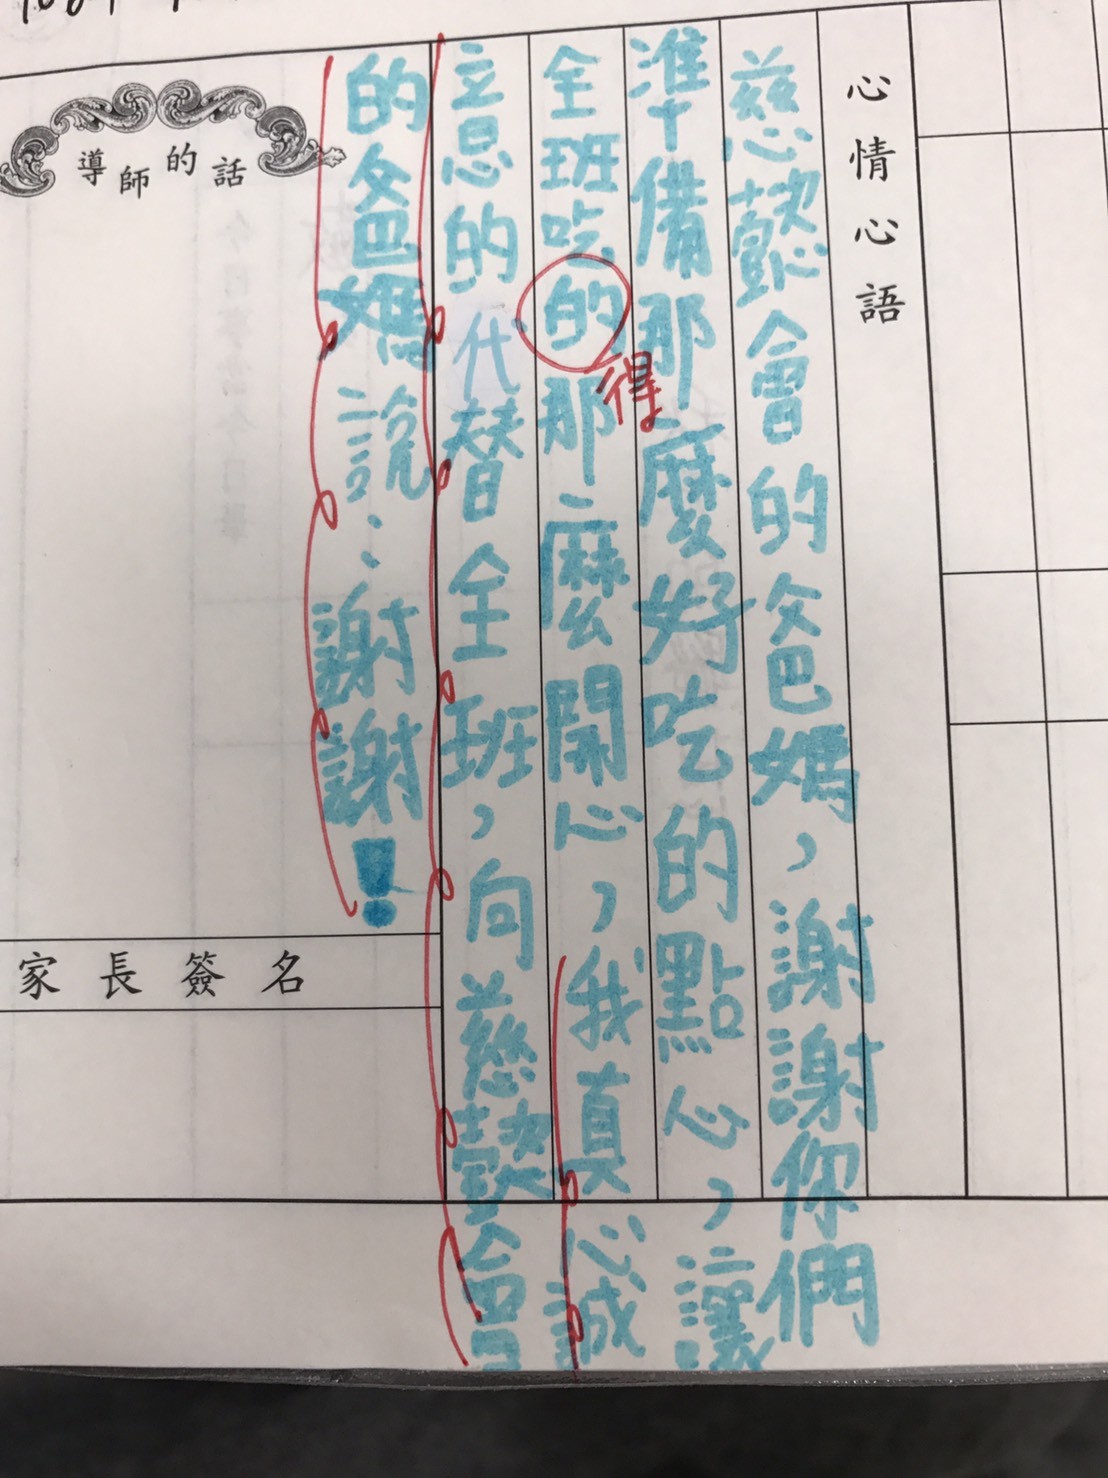 心情心語
慈懿會的爸媽，謝謝你們
準備那麼好吃的點心，讓
全班吃的那麼開心，我真心誠
得
意的代替全班，向慈懿會
的爸媽說：謝謝！
導師的話
家長簽名